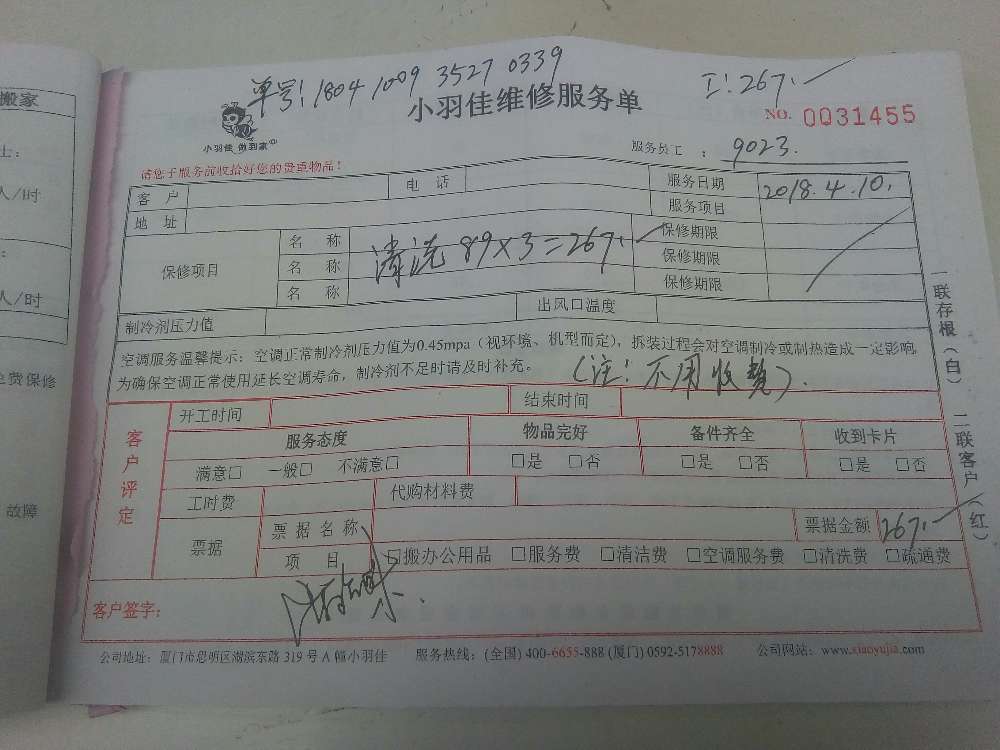 单号:1804 1009 3527 0339
工:267.
小羽佳 做到家
小羽佳维修服务单
NO. 0031455
服务员工 : 9023.
请您于服务前收拾好您的贵重物品!
客 户 电 话 服务日期 2018.4.10.
地 址 服务项目
保修项目
名 称 清洗 89×3=267. 保修期限
名 称 保修期限
名 称 保修期限
制冷剂压力值 出风口温度
空调服务温馨提示:空调正常制冷剂压力值为0.45mpa(视环境、机型而定),拆装过程会对空调制冷或制热造成一定影响,
为确保空调正常使用延长空调寿命,制冷剂不足时请及时补充。
(注:不用收费).
客户评定
开工时间 结束时间
服务态度 物品完好 备件齐全 收到卡片
满意□ 一般□ 不满意□ □是 □否 □是 □否 □是 □否
工时费 代购材料费
票据
票据名称 票据金额 267.
项 目 □搬办公用品 □服务费 □清洁费 □空调服务费 □清洗费 □疏通费
客户签字:
公司地址:厦门市思明区湖滨东路 319 号 A 幢小羽佳 服务热线:(全国) 400-6655-888 (厦门) 0592-5178888 公司网站:www.xiaoyujia.com
一联存根(白) 二联客户(红)
搬家
士:
人/时
人/时
免费保修
故障